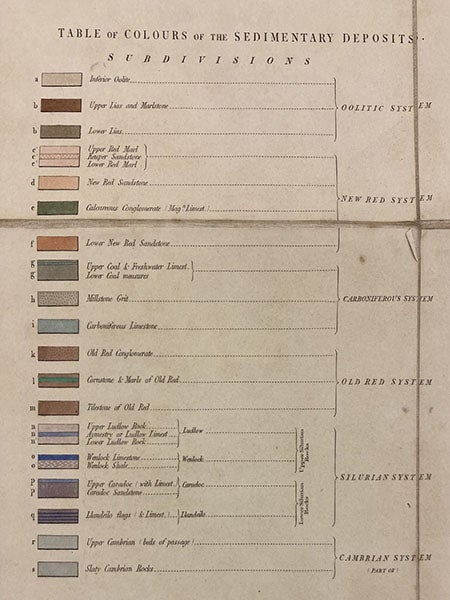 TABLE OF COLOURS OF THE SEDIMENTARY DEPOSITS.
SUBDIVISIONS
a Inferior Oolite
b Upper Lias and Marlstone
b Lower Lias
OOLITIC SYSTEM
c Upper Red Marl
c Keuper Sandstone
c Lower Red Marl
d New Red Sandstone
e Calcareous Conglomerate (Magn Limest.)
NEW RED SYSTEM
f Lower New Red Sandstone
g Upper Coal & Freshwater Limest.
g Lower Coal measures
h Millstone Grit
i Carboniferous Limestone
CARBONIFEROUS SYSTEM
k Old Red Conglomerate
l Cornstone & Marls of Old Red
m Tilestone of Old Red
OLD RED SYSTEM
n Upper Ludlow Rock
n Aymestry or Ludlow Limest.
n Lower Ludlow Rock
Ludlow
o Wenlock Limestone
o Wenlock Shale
Wenlock
Upper Silurian Rocks
p Upper Caradoc (with Limest.)
p Caradoc Sandstone
Caradoc
q Llandeilo flags (& Limest.)
Llandeilo
Lower Silurian Rocks
SILURIAN SYSTEM
r Upper Cambrian (beds of passage)
s Slaty Cambrian Rocks
CAMBRIAN SYSTEM
(PART OF)